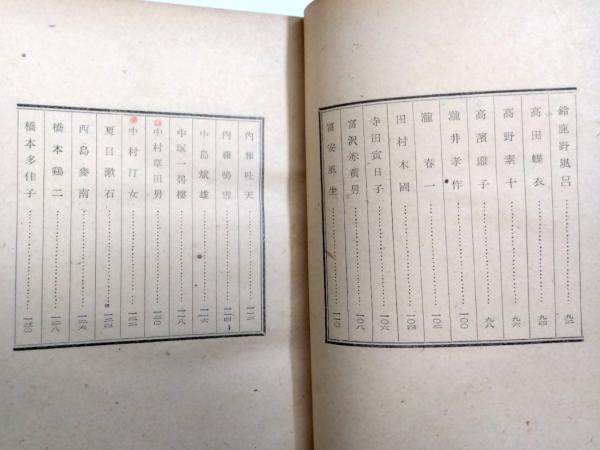 鈴鹿野風呂 九二
高田蝶衣 九四
高野素十 九六
高濱虛子 九八
瀧井孝作 一〇〇
瀧春一 一〇二
田村木國 一〇四
寺田寅日子 一〇六
富沢赤黄男 一〇八
富安風生 一一〇
內藤吐天 一一二
內藤鳴雪 一一四
中島斌雄 一一六
中塚一碧樓 一一八
中村草田男 一二〇
中村汀女 一二二
夏目漱石 一二四
西島麥南 一二六
橋本鶏二 一二八
橋本多佳子 一三〇